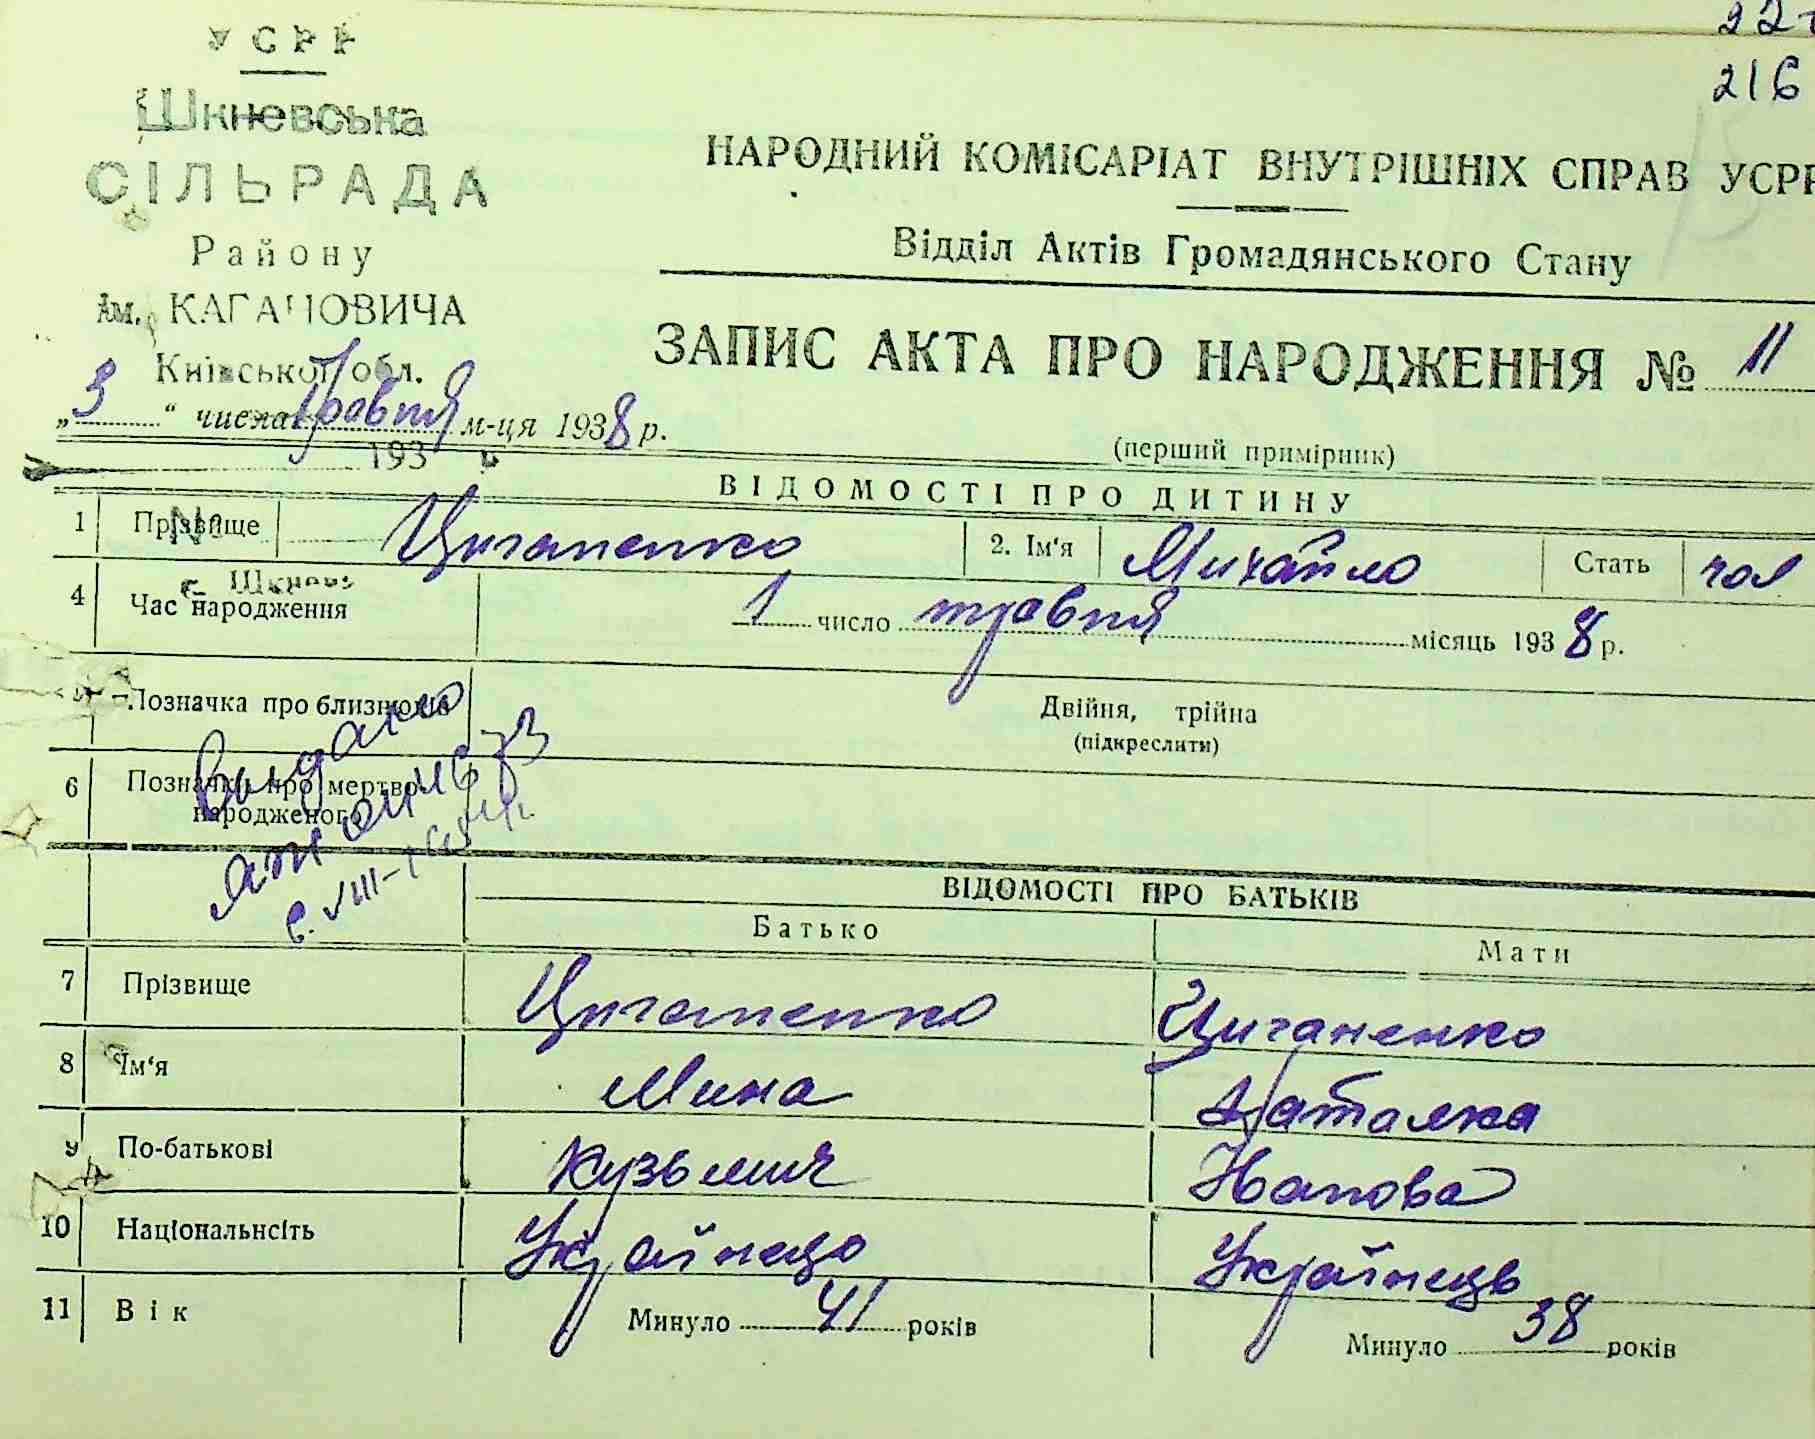 22
216
УСРР
Шкневська
СІЛЬРАДА
Району
Ім. КАГАНОВИЧА
Київської обл.
„3“ числа травня м-ця 1938 р.
193
№
с. Шкнева
НАРОДНИЙ КОМІСАРІАТ ВНУТРІШНІХ СПРАВ УСРР
Відділ Актів Громадянського Стану
ЗАПИС АКТА ПРО НАРОДЖЕННЯ № 11
(перший примірник)
ВІДОМОСТІ ПРО ДИТИНУ
1 Прізвище Циганенко 2. Ім‘я Михайло Стать чол
4 Час народження 1 число травня місяць 1938 р.
5 Позначка про близнюків Двійня, трійна
(підкреслити)
6 Позначка про мертво-
народженого
Выдано
ВІДОМОСТІ ПРО БАТЬКІВ
Батько Мати
7 Прізвище Циганенко Циганенко
8 Ім‘я Мина Наталка
9 По-батькові Кузьмич
10 Національнсіть Українець Українець
11 Вік Минуло 41 років Минуло 38 років